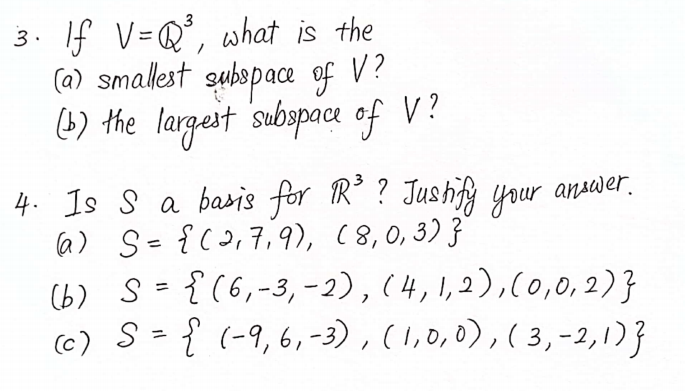 3. If V=ℚ³, what is the
(a) smallest subspace of V?
(b) the largest subspace of V?
4. Is S a basis for ℝ³? Justify your answer.
(a) S = {(2,7,9), (8,0,3)}
(b) S = {(6,-3,-2), (4,1,2), (0,0,2)}
(c) S = {(-9,6,-3), (1,0,0), (3,-2,1)}